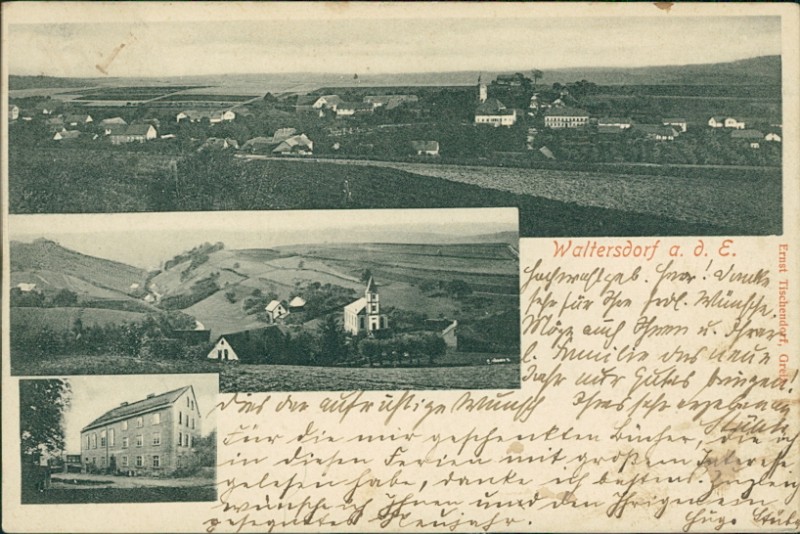 Waltersdorf a. d. E.
Ernst Tischendorf, Gre
Hochwohlgeb. Herr! Danke
sehr für Ihre frdl. Wünsche.
Möge auch Ihnen u. Ihrer
l. Familie das neue
Jahr nur Gutes bringen!
Dies der aufrichtige Wunsch Ihres sehr ergebenen
Für die mir geschenkten Bücher, die ich
in diesen Ferien mit großem Interesse
gelesen habe, danke ich bestens. Zugleich
wünsche ich Ihnen und den Ihrigen ein
gesegnetes Neujahr. Hugo